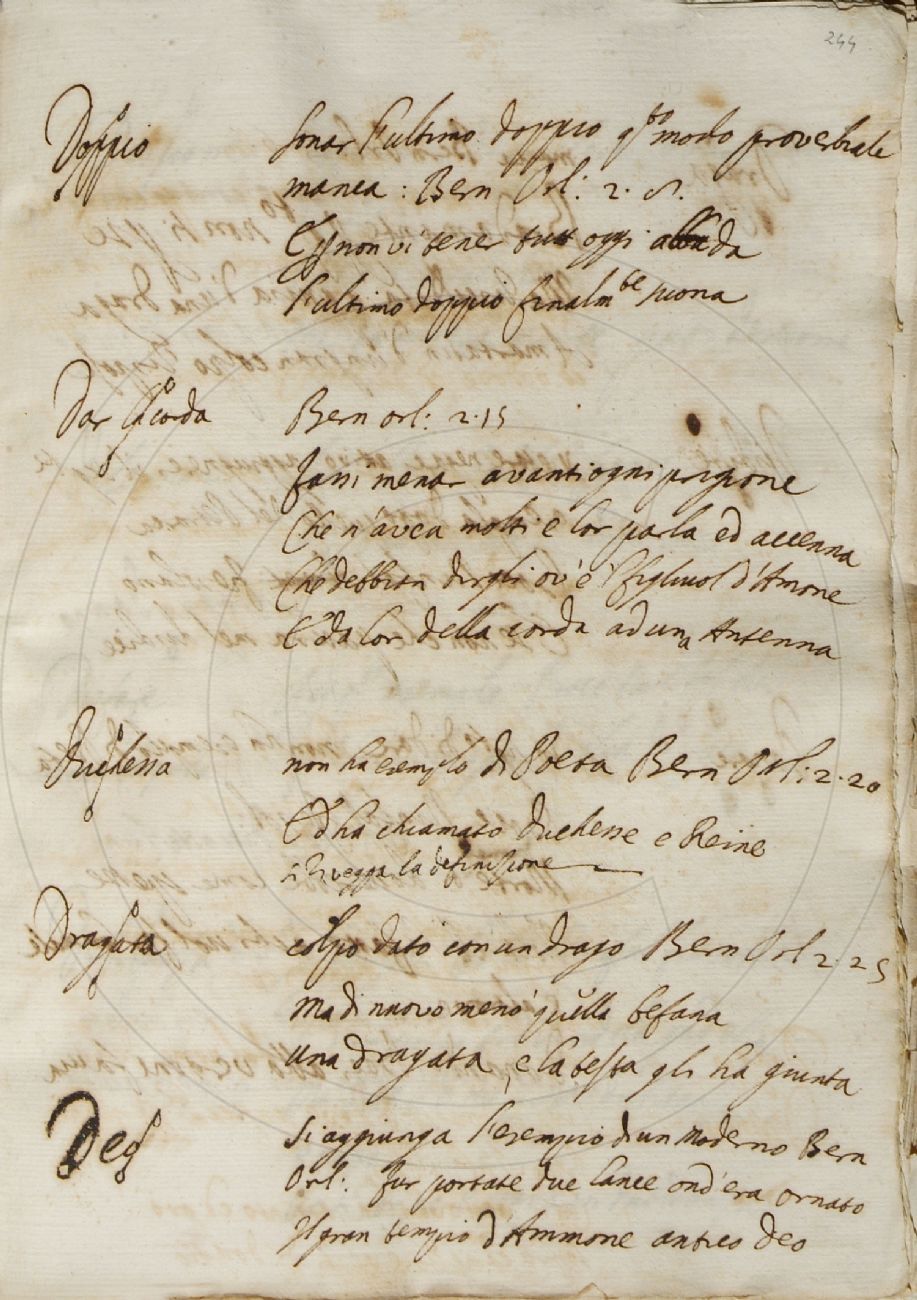 244
Doppio
Sonar l'ultimo doppio q.to modo proverbiale
manca: Bern Orl: 2.
E non vi tener tutt oggi a da
l'ultimo doppio finalm.te suona
Dar la corda
Bern orl: 2.15
fassi menar avanti ogni prigione
Che n'avea molti e lor parla ed accenna
Che debbian dirgli ov'è 'l figliuol d'Amone
E da lor della corda ad una Antenna
Duchessa
non ha esemplo di Poeta Bern Orl: 2.20
Ed ha chiamato duchesse e Reine
si rivegga la definizione
Dragata
colpo dato con un drago Bern Orl 2.25
Ma di nuovo menò quella befana
una dragata, e la testa gli ha giunta
Deo
si aggiunga l'esempio di un Moderno Bern
Orl: fur portate due lance ond'era ornato
Il gran tempio d'Ammone antico deo